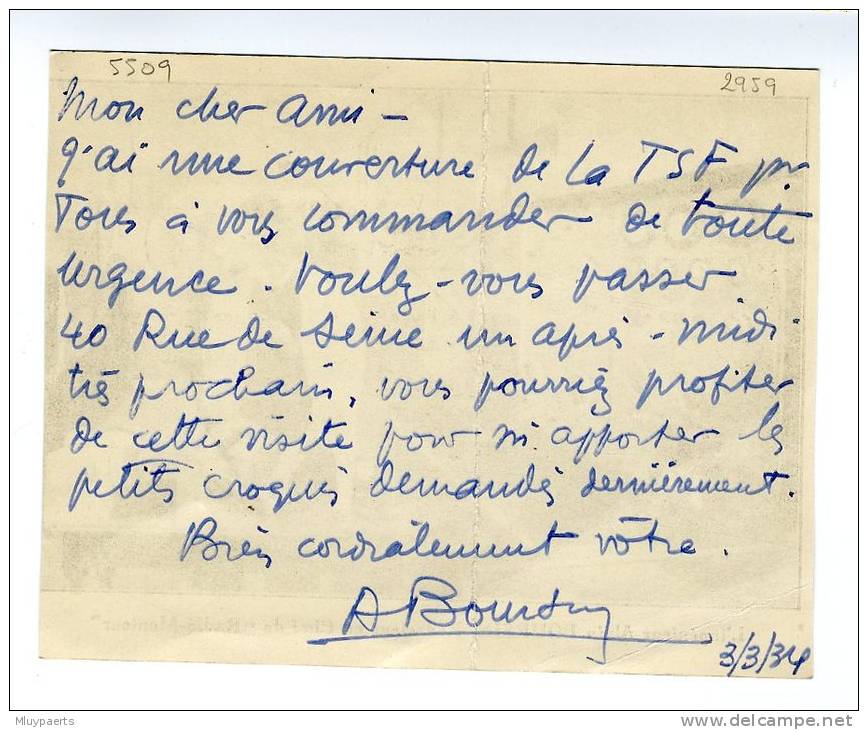 5509 2959
Mon cher Ami —
J'ai une couverture de la TSF pr
Tous à vous commander de toute
urgence. Voulez-vous passer
40 Rue de Seine un après-midi
très prochain, vous pourriez profiter
de cette visite pour m'apporter les
petits croquis demandés dernièrement.
Bien cordialement vôtre.
A Boursin
3/3/34
Mluypaerts
www.delcampe.net